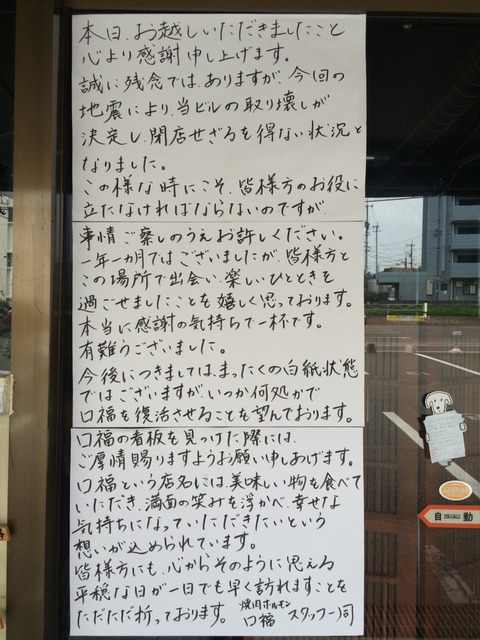 本日、お越しいただきましたこと
心より感謝申し上げます。
誠に残念では、ありますが、今回の
地震により、当ビルの取り壊しが
決定し、閉店せざるを得ない状況と
なりました。
この様な時にこそ、皆様方のお役に
立たなければならないのですが、
事情ご察しのうえお許しください。
一年一ヵ月ではございましたが、皆様方と
この場所で出会い、楽しいひとときを
過ごせましたことを嬉しく思っております。
本当に感謝の気持ちで一杯です。
有難うございました。
今後につきましては、まったくの白紙状態
ではございますが、いつか何処かで
口福を復活させることを望んでおります。
口福の看板を見つけた際には、
ご厚情賜りますようお願い申しあげます。
口福という店名には、美味しい物を食べて
いただき、満面の笑みを浮かべ、幸せな
気持ちになっていただきたいという
想いが込められています。
皆様方にも、心からそのように思える
平穏な日が一日でも早く訪れますことを
ただただ祈っております。
焼肉ホルモン
口福 スタッフ一同
自動